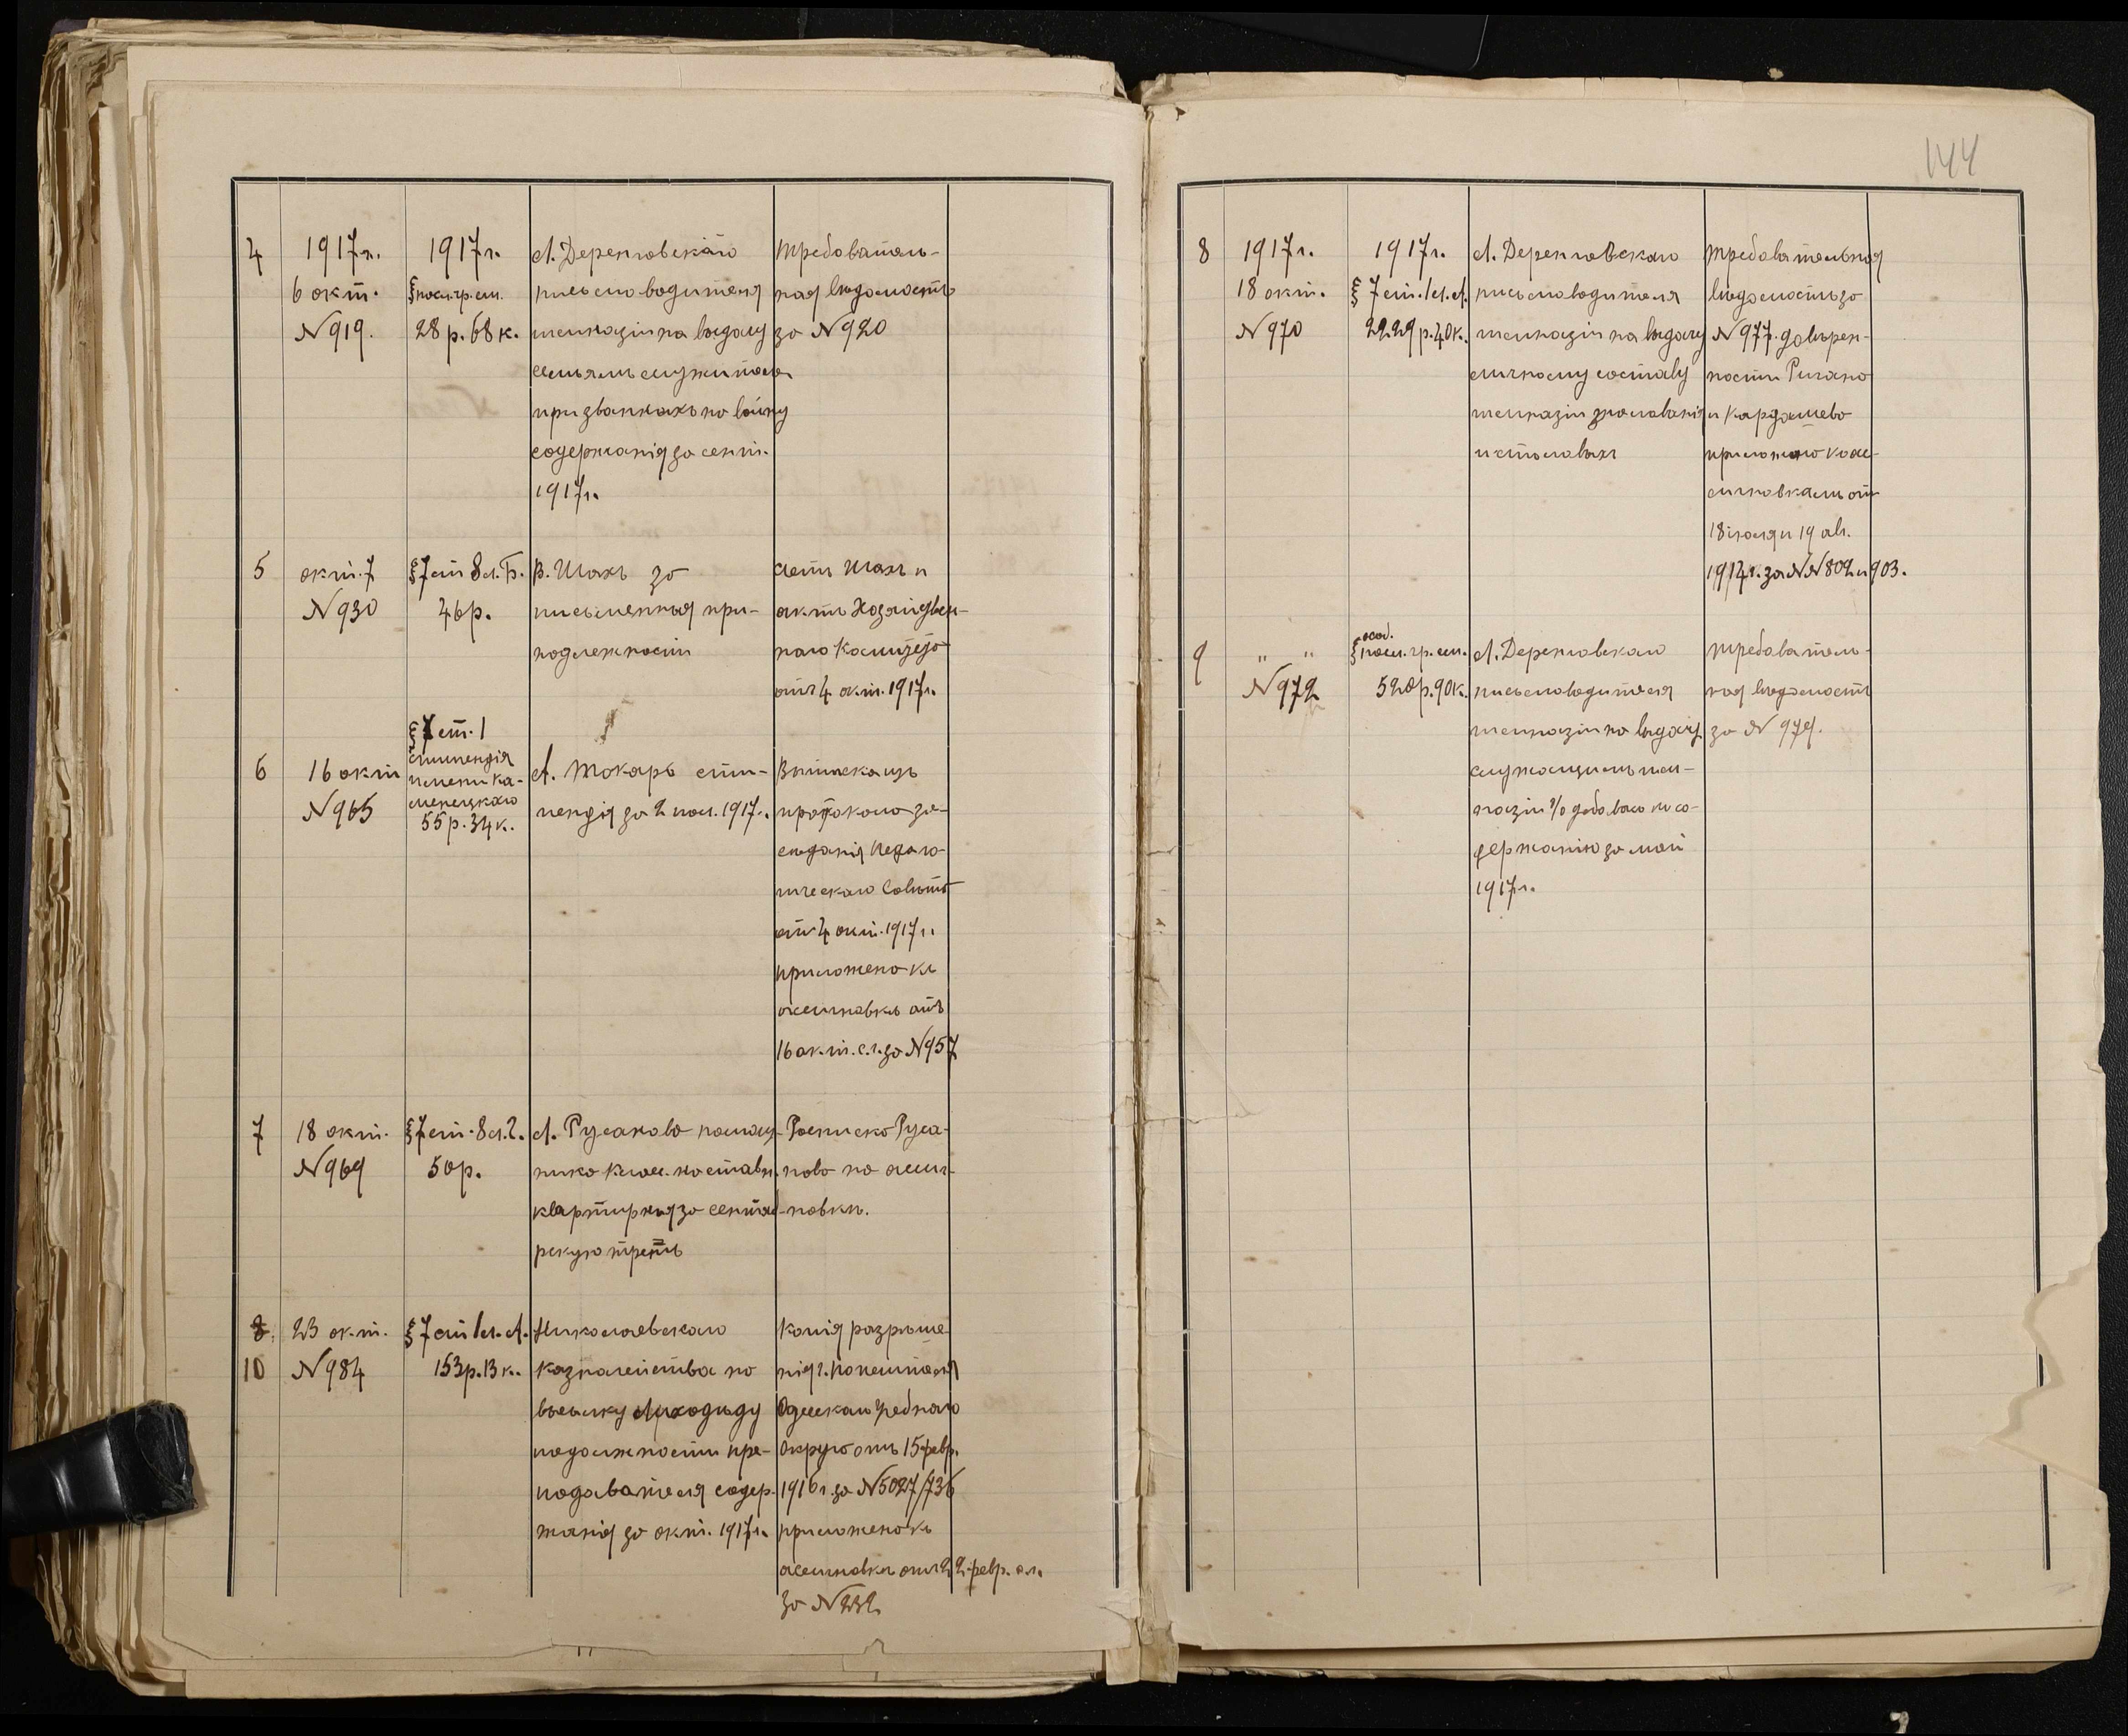 4
1917г.
6 окт.
№ 919.
1917г.
28 р. 68 к.
А. Деренговскаго
письмоводителя
гимназіи на выдачу
семьямъ служителей
призванныхъ на войну
содержанія за сент.
1917г.
Требователь-
ная вѣдомость
за № 920
5
окт. 7
№ 930
§7 ст 8 л. Б.
46 р.
В. Шахъ за
письменныя при-
надлежности
счетъ Шахъ и
актъ Хозяйствен-
наго Комитета
отъ 4 окт. 1917г.
6
16 окт
№ 965
§7 ст. 1
стипендія
имени Ка-
менецкаго
55 р. 34 к.
А. Токарь стип-
пендія за 2 пол. 1917г.
Выписка изъ
протокола за-
сѣданія Педаго-
гическаго Совѣта
отъ 4 окт. 1917г.
приложена къ
ассигновкѣ отъ
16 окт. с.г. за № 957
7
18 окт.
№ 969
§7 ст. 8 л. 2.
50 р.
А. Русанова помощ-
ника класс. наставн.
квартирныя за сентяб-
рскую треть
Росписка Руса-
нова на ассиг-
новкѣ.
8.
10
23 окт.
№ 984
§7 ст 1 л. А.
153 р. 13 к.
Николаевскаго
казначейства на
высылку
по должности пре-
подавателя содер-
жанія за окт. 1917г.
Копія разрѣше-
нія г. Попечителя
Одесскаго Учебнаго
Округа отъ 15 февр.
1916 г. за № 5027/736
приложена къ
ассигновкѣ отъ 22 февр.
за № 232
144
8
1917г.
18 окт.
№ 970
1917г.
§7 ст. 1 л. А.
2229 р. 40 к.
А. Деренговскаго
письмоводителя
гимназіи на выдачу
личному составу
гимназіи жалованія
и столовыхъ
Требовательная
вѣдомость за
№ 977. довѣрен-
ности
и Кардашева
приложено къ ас-
сигновкамъ отъ
18 іюля и 19 авг.
1914г. за №№ 802 и 903.
9
" "
№ 972
520 р. 90 к.
А. Деренговскаго
письмоводителя
гимназіи на выдачу
служащимъ гим-
назіи % добавки къ со-
держанію за май
1917г.
Требователь-
ная вѣдомость
за № 979.